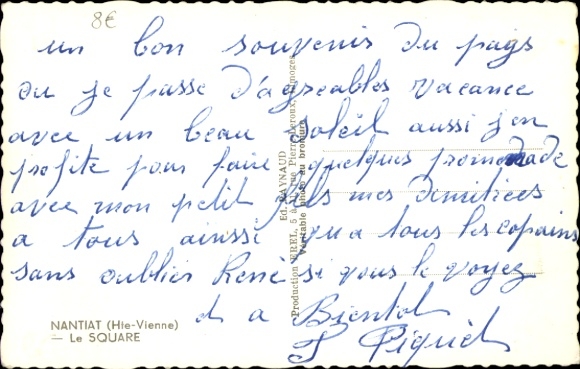 8€
un bon souvenir du pays
ou je passe d'agréables vacance
avec un beau soleil aussi j'en
profite pour faire quelques promenade
avec mon petit fils mes
a tous ainssi qu'a tous les copains
sans oublier René si vous le voyez
et a Bientot
J Piquet
NANTIAT (Hte-Vienne)
— Le SQUARE
Ed. RAYNAUD
Production 5 à rue Pierre Leroux, Limoges
Véritable photo au bromure